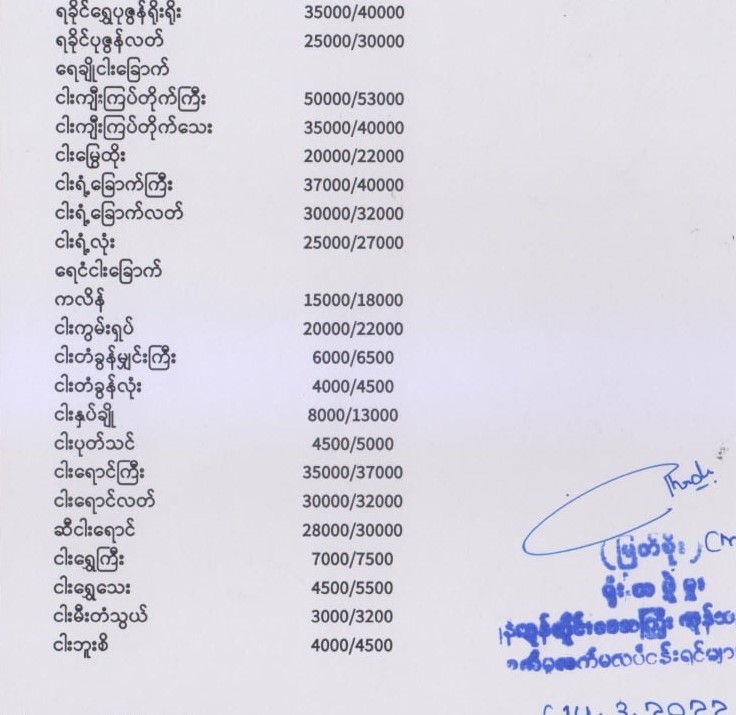 ရခိုင်ရွှေပုဇွန်ရိုးရိုး 35000/40000
ရခိုင်ပုဇွန်လတ် 25000/30000
ရေချိုငါးခြောက်
ငါးကျီးကြပ်တိုက်ကြီး 50000/53000
ငါးကျီးကြပ်တိုက်သေး 35000/40000
ငါးမြွေထိုး 20000/22000
ငါးရံ့ခြောက်ကြီး 37000/40000
ငါးရံ့ခြောက်လတ် 30000/32000
ငါးရံ့လုံး 25000/27000
ရေငံငါးခြောက်
ကလိန် 15000/18000
ငါးကွမ်းရှပ် 20000/22000
ငါးတံခွန်မျှင်းကြီး 6000/6500
ငါးတံခွန်လုံး 4000/4500
ငါးနှပ်ချို 8000/13000
ငါးပုတ်သင် 4500/5000
ငါးရောင်ကြီး 35000/37000
ငါးရောင်လတ် 30000/32000
ဆီငါးရောင် 28000/30000
ငါးရွှေကြီး 7000/7500
ငါးရွှေသေး 4500/5500
ငါးမီးတံသွယ် 3000/3200
ငါးဘူးစိ 4000/4500
(မြတ်စိုး)
ရုံးအဖွဲ့မှူး